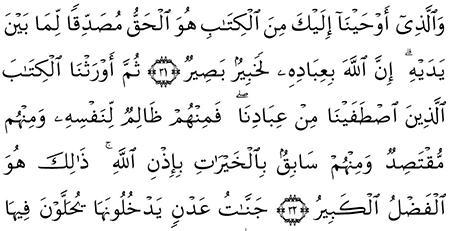 وَٱلَّذِىٓ أَوْحَيْنَآ إِلَيْكَ مِنَ ٱلْكِتَٰبِ هُوَ ٱلْحَقُّ مُصَدِّقًا لِّمَا بَيْنَ
يَدَيْهِ ۗ إِنَّ ٱللَّهَ بِعِبَادِهِۦ لَخَبِيرٌۢ بَصِيرٌ ﴿٣١﴾ ثُمَّ أَوْرَثْنَا ٱلْكِتَٰبَ
ٱلَّذِينَ ٱصْطَفَيْنَا مِنْ عِبَادِنَا ۖ فَمِنْهُمْ ظَالِمٌ لِّنَفْسِهِۦ وَمِنْهُم
مُّقْتَصِدٌ وَمِنْهُمْ سَابِقٌۢ بِٱلْخَيْرَٰتِ بِإِذْنِ ٱللَّهِ ۚ ذَٰلِكَ هُوَ
ٱلْفَضْلُ ٱلْكَبِيرُ ﴿٣٢﴾ جَنَّٰتُ عَدْنٍ يَدْخُلُونَهَا يُحَلَّوْنَ فِيهَا